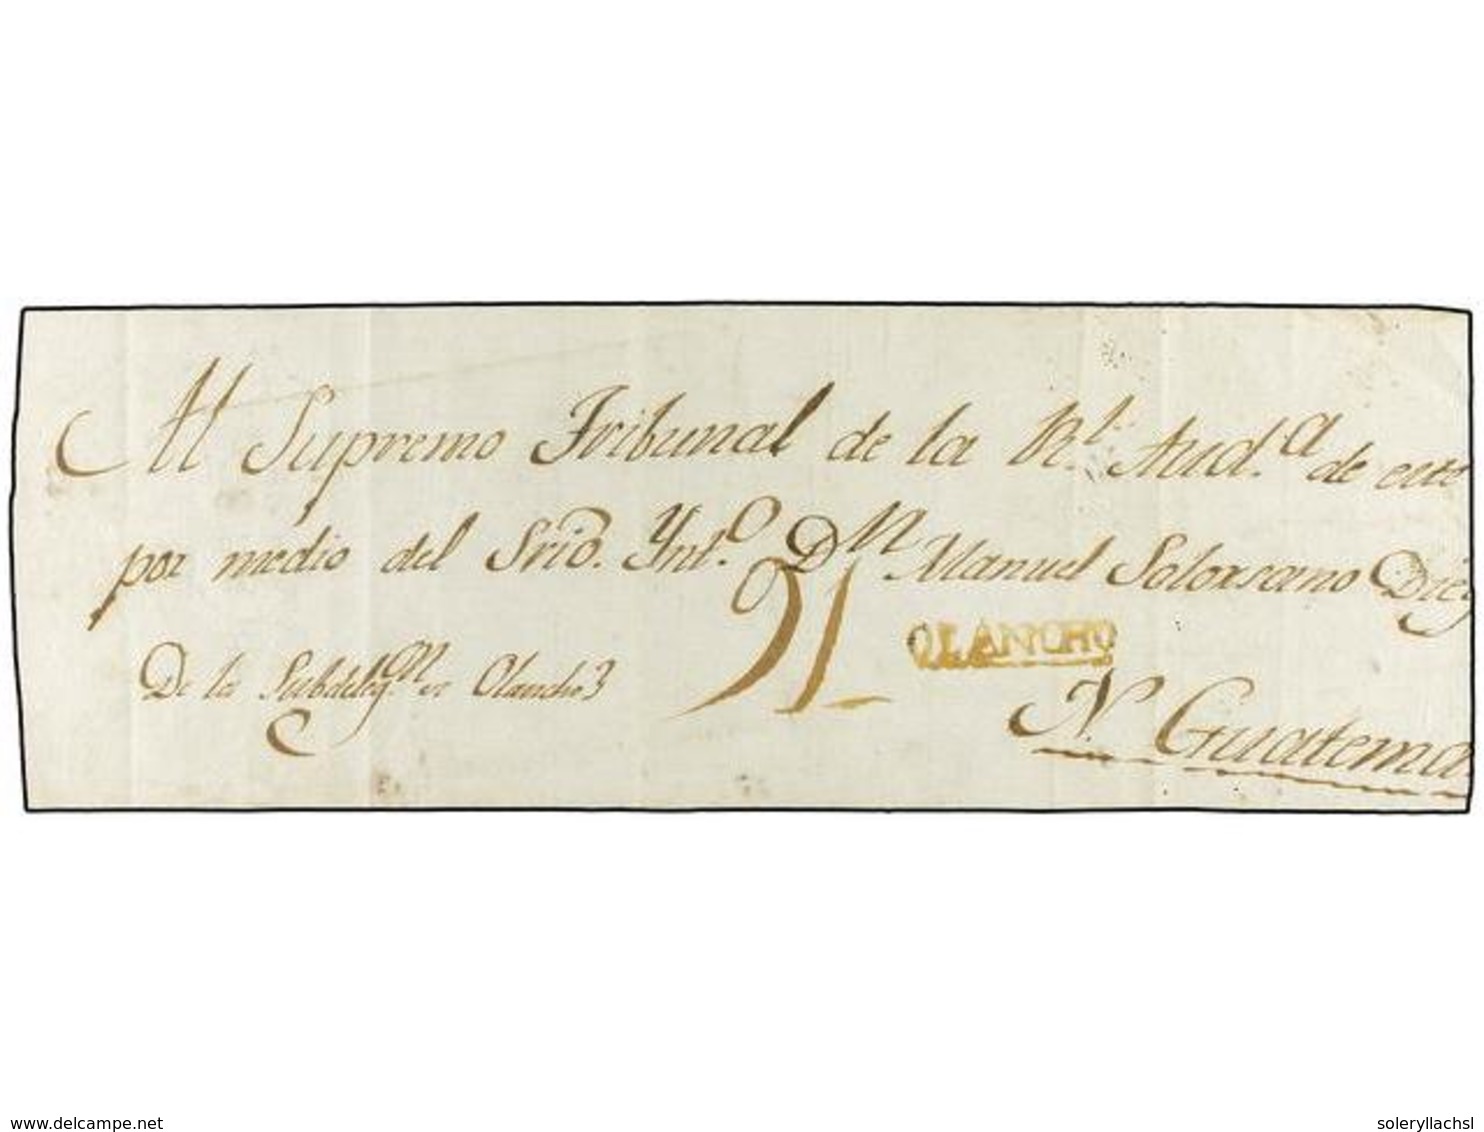 Al Supremo Tribunal de la Rl. Aud.a de este
por medio del Srio. Ynt.o Dn Manuel Solorsano
De la Subdeleg.n de Olancho
OLANCHO
N. Guatema
delcampe.net
soleryllachsl